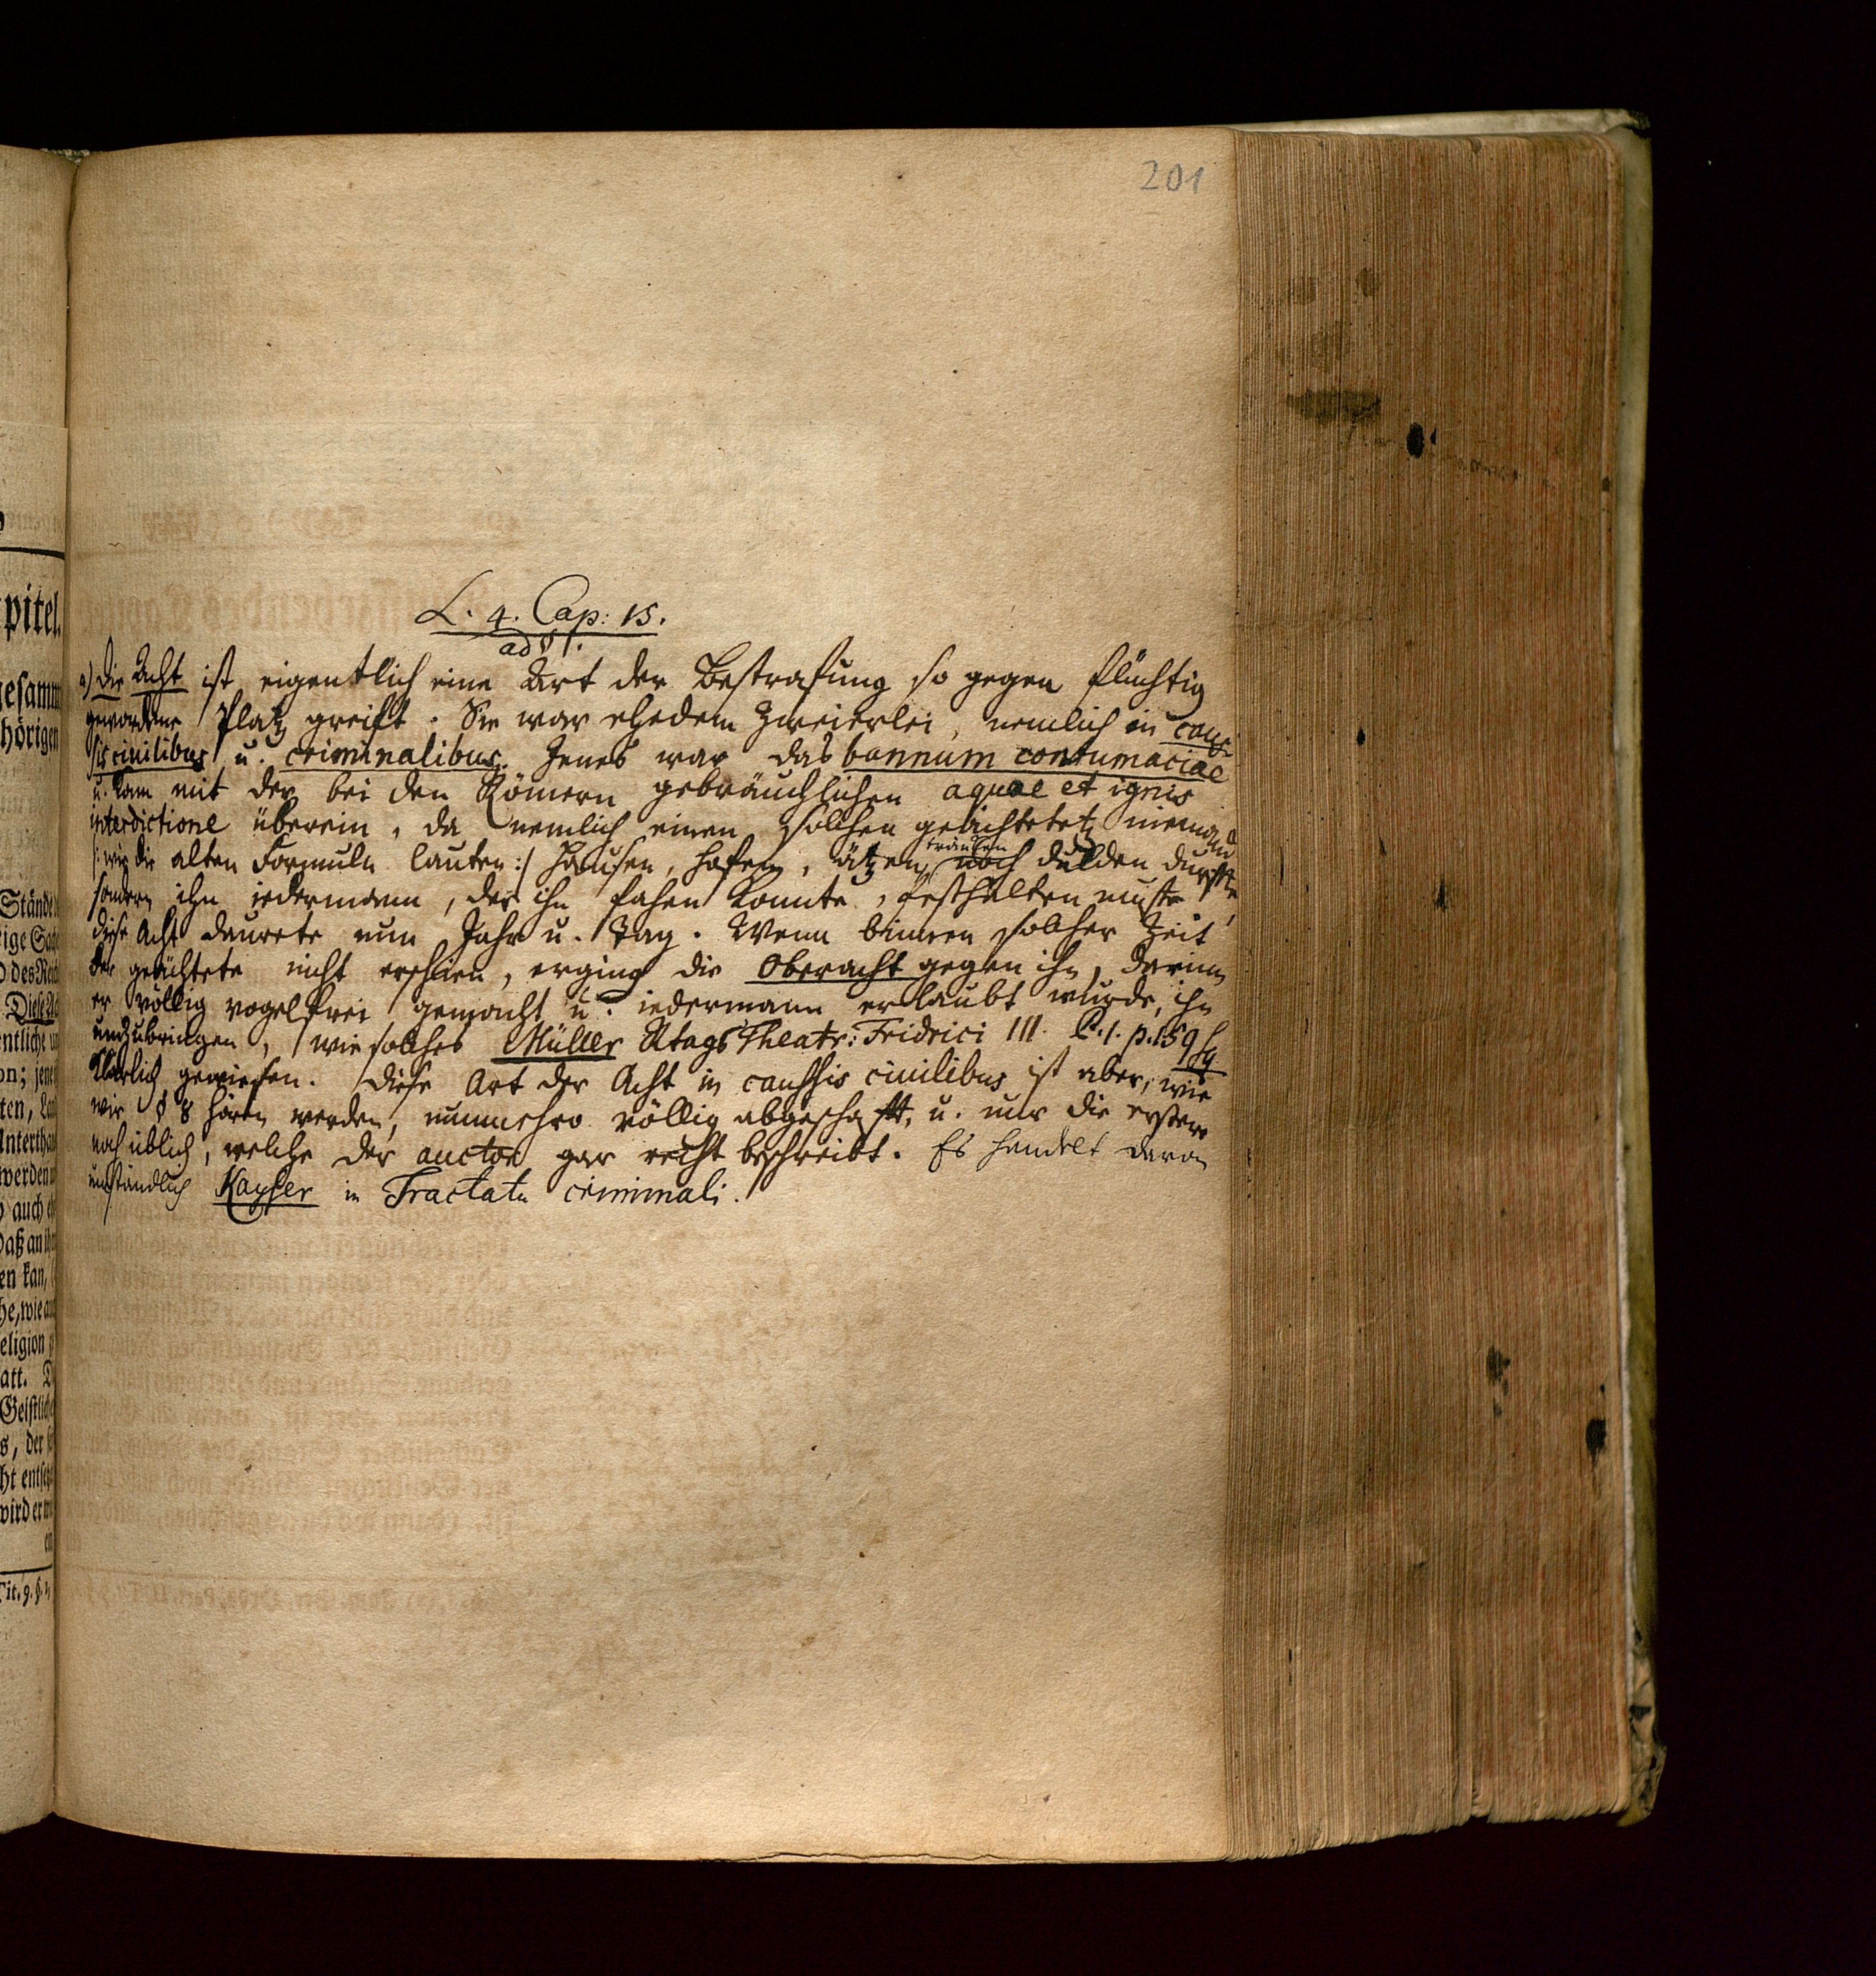 201
L. 4. Cap: 15.
ad § 1.
a) Die Acht ist eigentlich eine Art der Bestrafung so gegen flüchtig
gewordene Platz greift. Sie war ehedem zweierlei, nemlich in caus-
sis ciuilibus u. criminalibus. Jenes war das bannum contumaciae
u. kam mit der bei den Römern gebräuchlichen aquae et ignis
interdictione überein, da nemlich einen solchen geächteten niemand
/: wie die alten Formuln lauten :/ hausen, hofen, ätzen, tränken noch dulden durfte,
sondern ihn iedermann, der ihn fahen konnte, festhalten muste
diese Acht daurete nun Jahr u. Tag. Wenn binnen solcher Zeit
der geächtete nicht erschien, erging die Oberacht gegen ihn, darinn
er völlig vogelfrei gemacht u. iedermann erlaubt wurde, ihn
umzubringen, wie solches Müller Rtags Theatr: Fridrici III. P. 1. p. 159 sq
klärlich gewiesen. Diese Art der Acht in caussis ciuilibus ist aber, wie
wir § 8 hören werden, nunmehro völlig abgeschafft, u. nur die erstere
noch üblich, welche der auctor gar recht beschreibt. Es handelt davon
umständlich Kayser in Tractatu criminali.
pitel.
gesamm
hörigen
Stände
ige Sa
des Rei
Diese A
entliche
on; jene
ten,
Unterthan
werden
auch
daß an
en kan,
he, wie
eligion
att.
Geistlich
s, der
ht entse
wird er
en
Tit. 9. §.